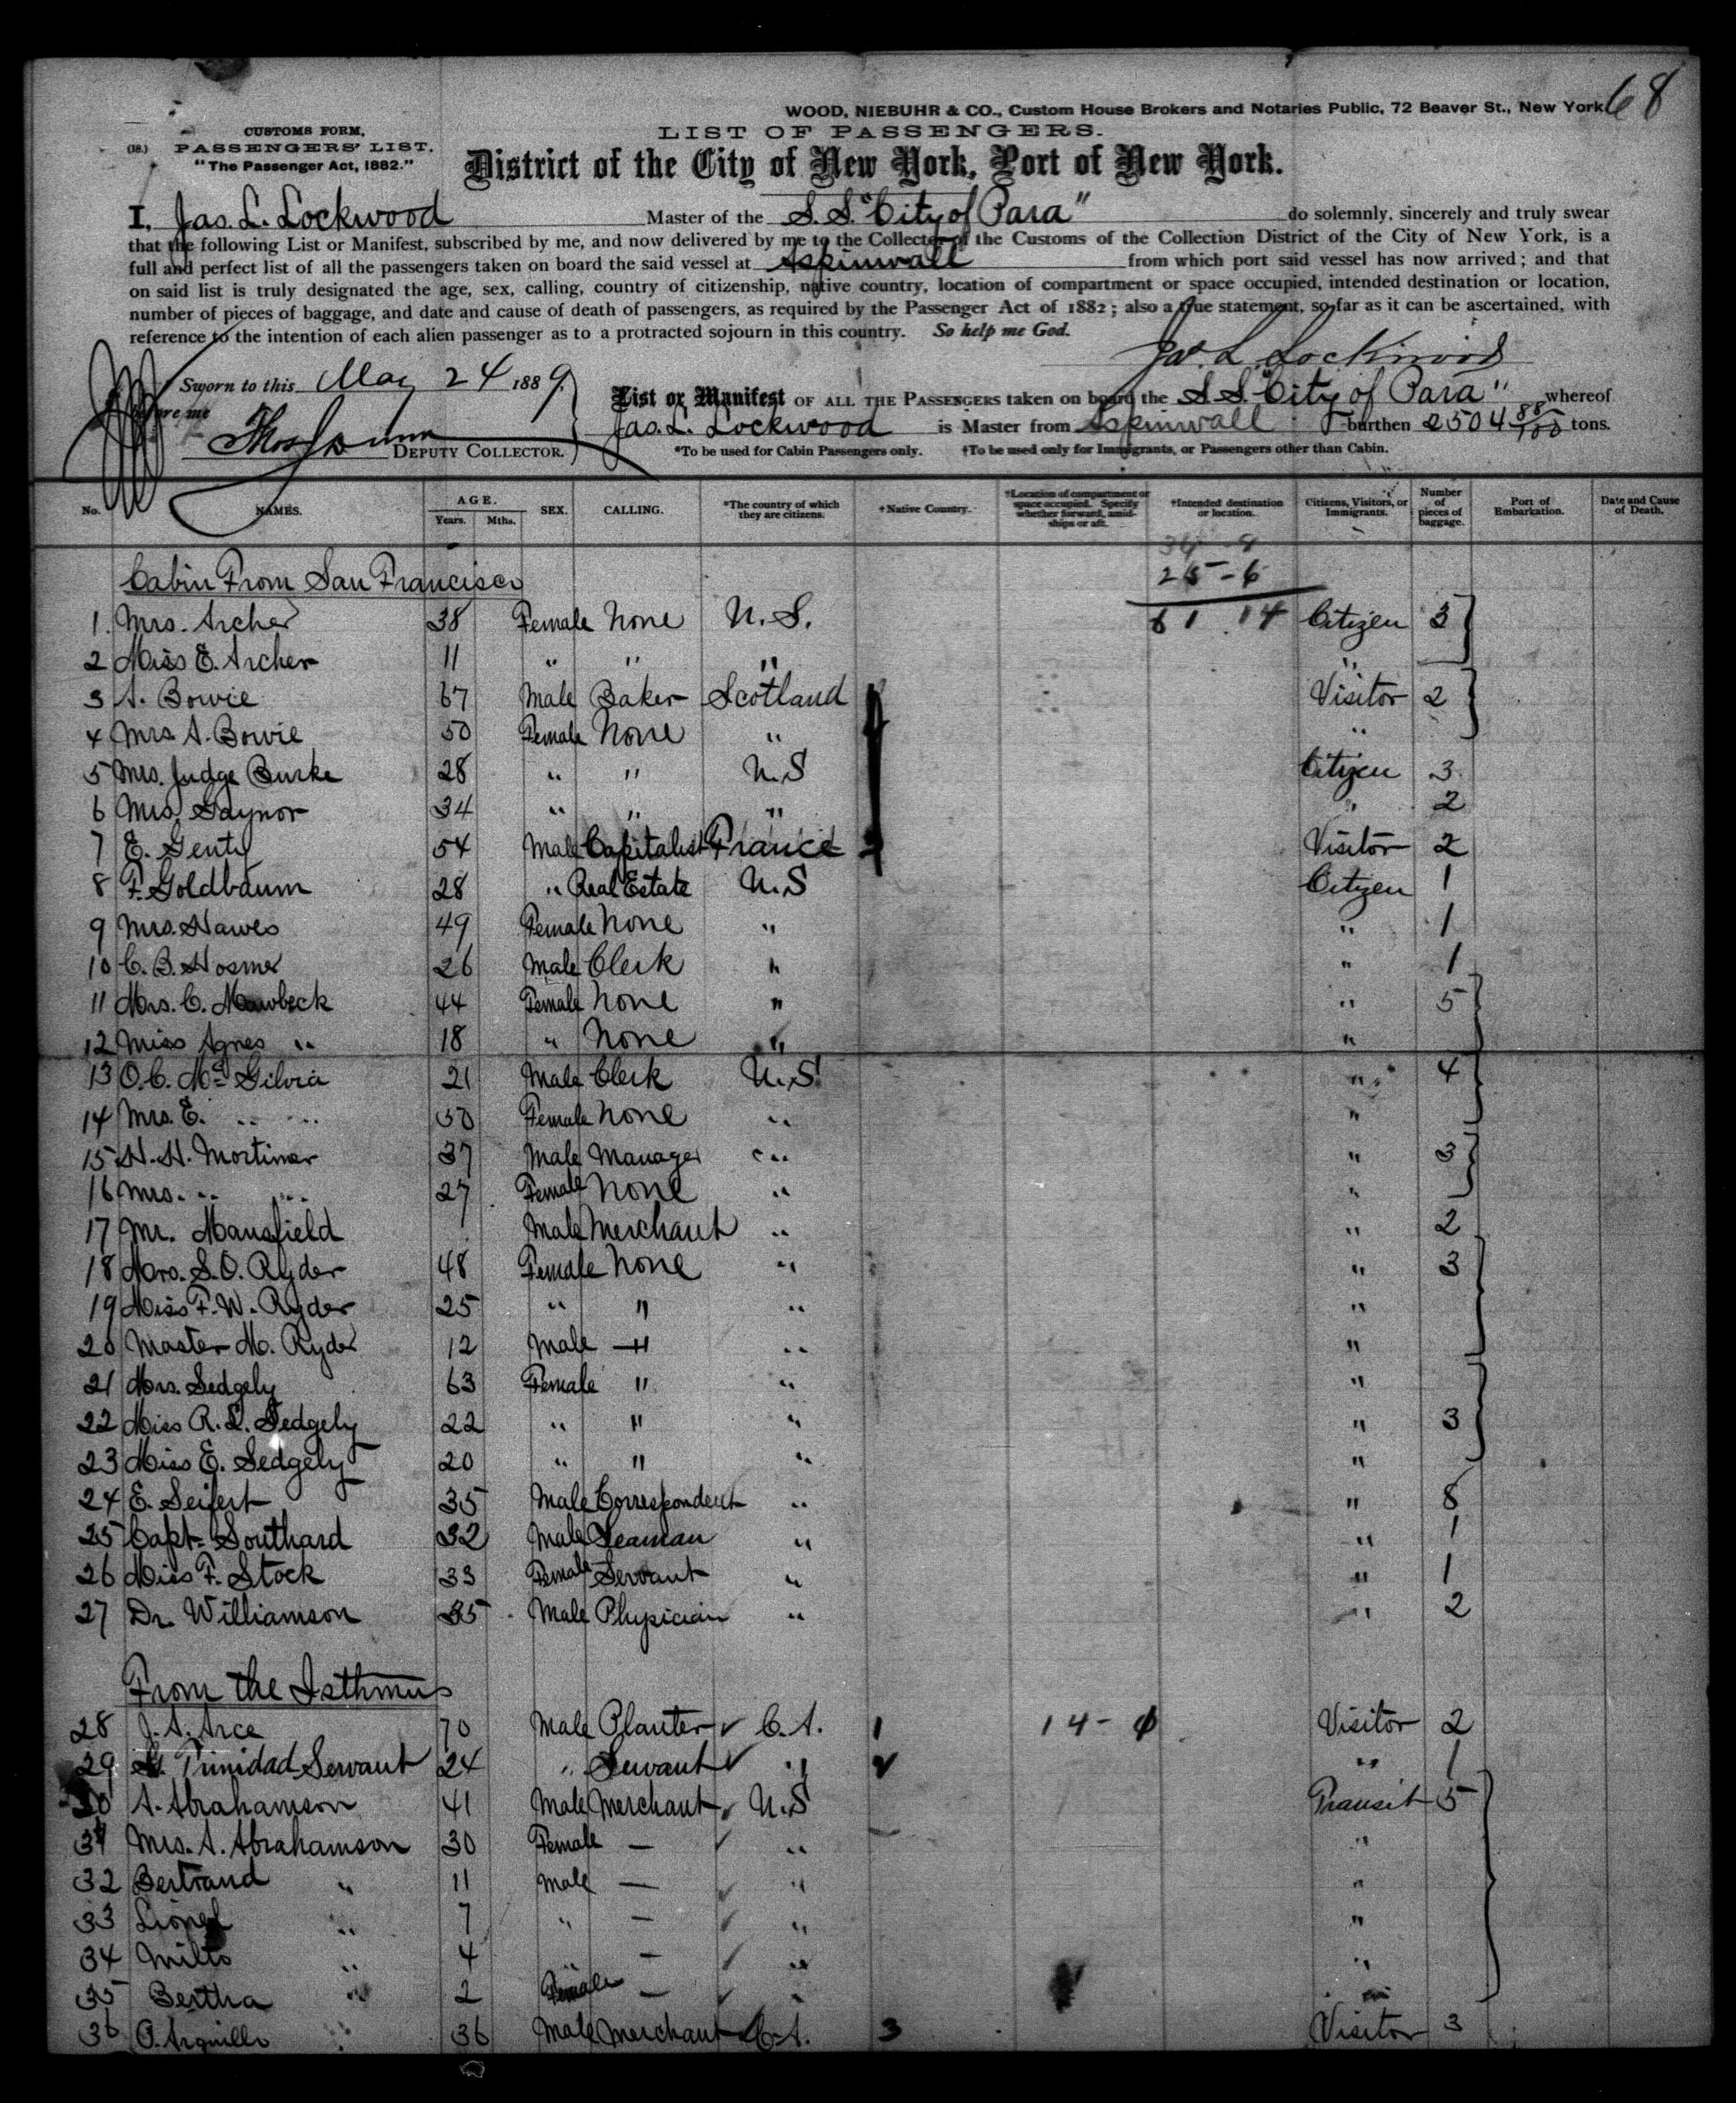 68
WOOD, NIEBUHR & CO., Custom House Brokers and Notaries Public, 72 Beaver St., New York
CUSTOMS FORM,
(18.) PASSENGERS' LIST.
"The Passenger Act, 1882."
LIST OF PASSENGERS.
District of the City of New York, Port of New York.
I, Jas. L. Lockwood Master of the S.S. "City of Para" do solemnly, sincerely and truly swear
that the following List or Manifest, subscribed by me, and now delivered by me to the Collector of the Customs of the Collection District of the City of New York, is a
full and perfect list of all the passengers taken on board the said vessel at Aspinwall from which port said vessel has now arrived; and that
on said list is truly designated the age, sex, calling, country of citizenship, native country, location of compartment or space occupied, intended destination or location,
number of pieces of baggage, and date and cause of death of passengers, as required by the Passenger Act of 1882; also a true statement, so far as it can be ascertained, with
reference to the intention of each alien passenger as to a protracted sojourn in this country. So help me God.
Jas. L. Lockwood
Sworn to this May 24 1889
before me
DEPUTY COLLECTOR.
List or Manifest OF ALL THE PASSENGERS taken on board the S.S. "City of Para" whereof
Jas. L. Lockwood is Master from Aspinwall burthen 2504 88/100 tons.
*To be used for Cabin Passengers only. †To be used only for Immigrants, or Passengers other than Cabin.
No. NAMES. AGE. Years. Mths. SEX. CALLING. *The country of which they are citizens. †Native Country. †Location of compartment or space occupied. Specify whether forward, amidships or aft. †Intended destination or location. Citizens, Visitors, or Immigrants. Number of pieces of baggage. Port of Embarkation. Date and Cause of Death.
Cabin From San Francisco
25 - 6
61 14
1. Mrs. Archer 38 Female None U.S. Citizen 3
2 Miss E. Archer 11 " " " "
3 A. Bowie 67 Male Baker Scotland Visitor 2
4 Mrs A. Bowie 50 Female None " "
5 Mrs. Judge Burke 28 " " U.S Citizen 3
6 Mrs. Gaynor 34 " " " " 2
7 E. Genty 54 Male Capitalist France Visitor 2
8 F. Goldbaum 28 " Real Estate U.S Citizen 1
9 Mrs. Hawes 49 Female None " " 1
10 C. B. Hosmer 26 Male Clerk " " 1
11 Mrs. C. Mawbeck 44 Female None " " 5
12 Miss Agnes " 18 " None " "
13 O. C. Mc Gilvia 21 Male Clerk U.S " 4
14 Mrs. E. " " 50 Female None " "
15 H. H. Mortimer 37 Male Manager " " 3
16 Mrs. " " 27 Female None " "
17 Mr. Mansfield Male Merchant " " 2
18 Mrs. S. O. Ryder 48 Female None " " 3
19 Miss F. W. Ryder 25 " " " "
20 Master M. Ryder 12 Male " " "
21 Mrs. Sedgely 63 Female " " "
22 Miss R. L. Sedgely 22 " " " " 3
23 Miss E. Sedgely 20 " " " "
24 E. Seifert 35 Male Correspondent " " 8
25 Capt. Southard 32 Male Seaman " " 1
26 Miss F. Stock 33 Female Servant " " 1
27 Dr. Williamson 35 Male Physician " " 2
From the Isthmus
28 J. A. Arce 70 Male Planter C. A. 1 14 - Visitor 2
29 Trinidad Servant 24 " Servant " " 1
30 A. Abrahamson 41 Male Merchant U.S Transit 5
31 Mrs. A. Abrahamson 30 Female — " "
32 Bertrand " 11 Male — " "
33 Lionel " 7 " — " "
34 Milto " 4 " — " "
35 Bertha " 2 Female — " "
36 36 Male Merchant C. A. 3 Visitor 3